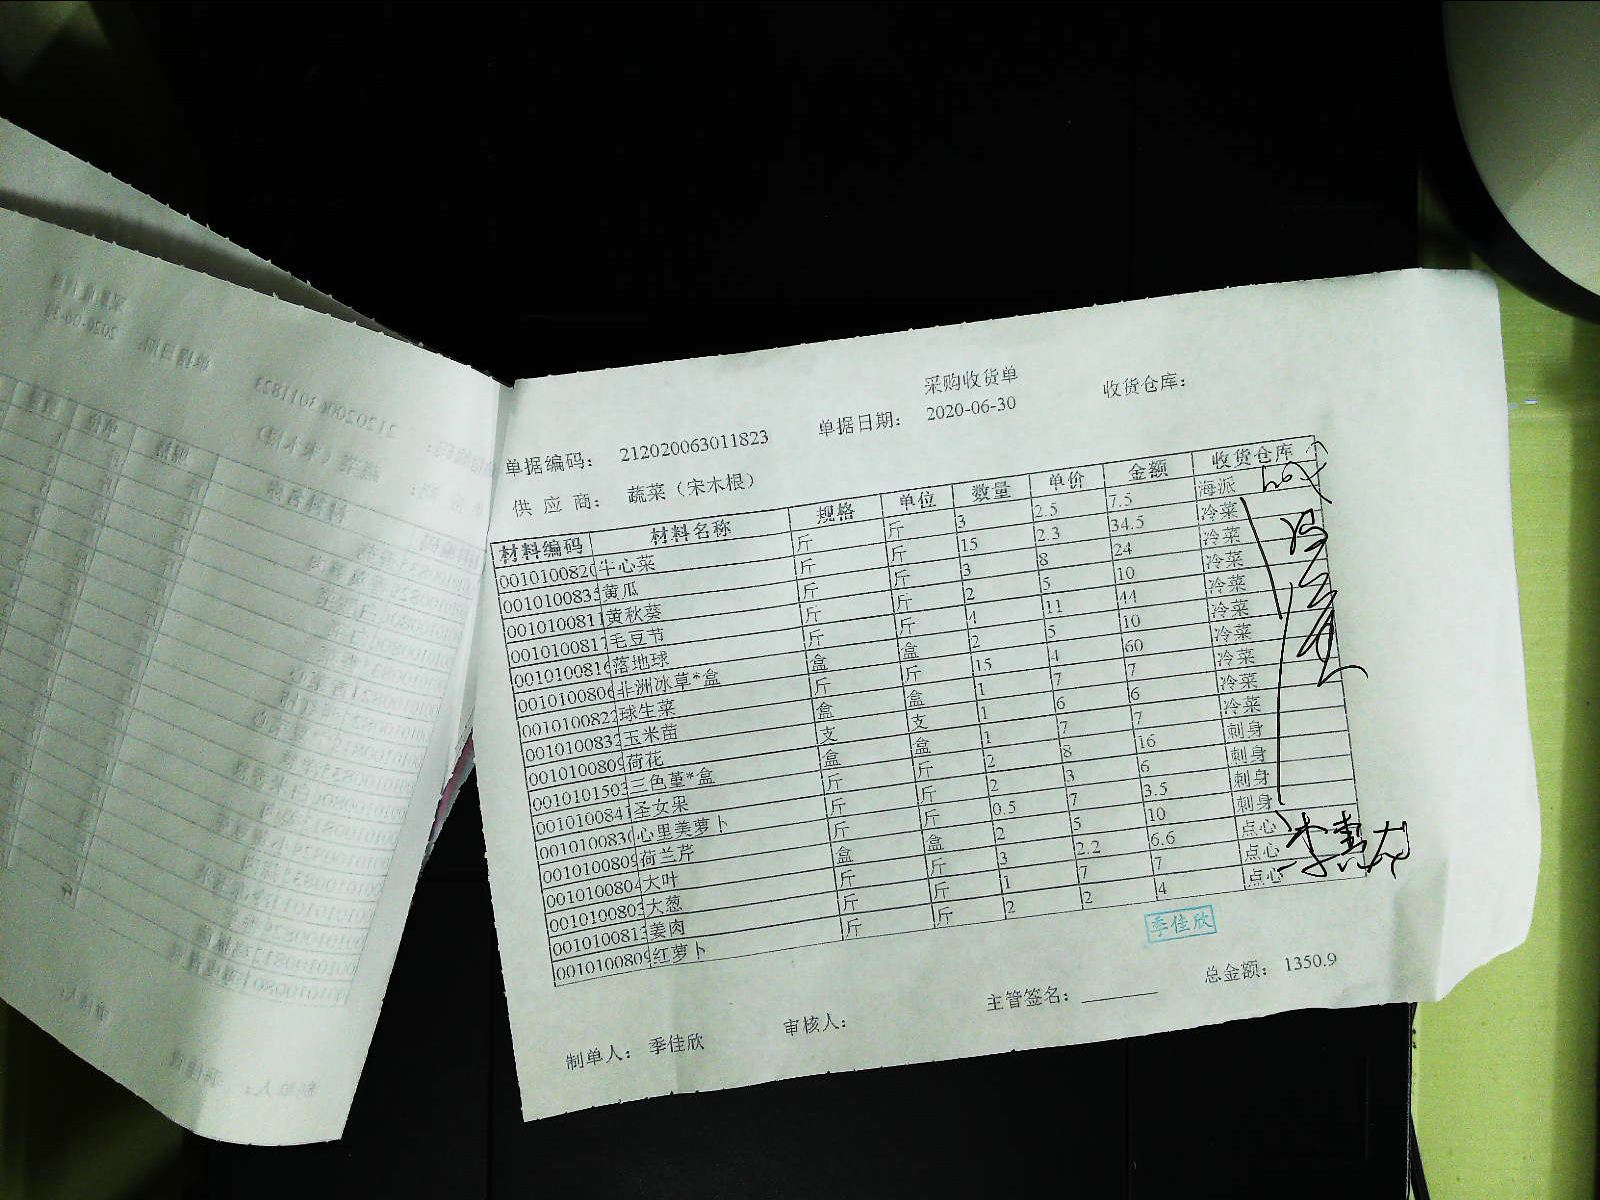 采购收货单
单据编码: 212020063011823 单据日期: 2020-06-30 收货仓库:
供 应 商: 蔬菜（宋木根）
材料编码 材料名称 规格 单位 数量 单价 金额 收货仓库
0010100820 牛心菜 斤 斤 3 2.5 7.5 海派
001010083 黄瓜 斤 斤 15 2.3 34.5 冷菜
001010081 黄秋葵 斤 斤 3 8 24 冷菜
001010081 毛豆节 斤 斤 2 5 10 冷菜
001010081 落地球 斤 斤 4 11 44 冷菜
001010080 非洲冰草*盒 盒 盒 2 5 10 冷菜
001010082 球生菜 斤 斤 15 4 60 冷菜
001010083 玉米苗 盒 盒 1 7 7 冷菜
001010080 荷花 支 支 1 6 6 冷菜
001010150 三色堇*盒 盒 盒 1 7 7 冷菜
001010084 圣女果 斤 斤 2 8 16 刺身
001010083 心里美萝卜 斤 斤 2 3 6 刺身
001010080 荷兰芹 斤 斤 0.5 7 3.5 刺身
001010080 大叶 盒 盒 2 5 10 刺身
001010080 大葱 斤 斤 3 2.2 6.6 点心
001010081 姜肉 斤 斤 1 7 7 点心
001010080 红萝卜 斤 斤 2 2 4 点心
季佳欣
制单人: 季佳欣 审核人: 主管签名: 总金额: 1350.9